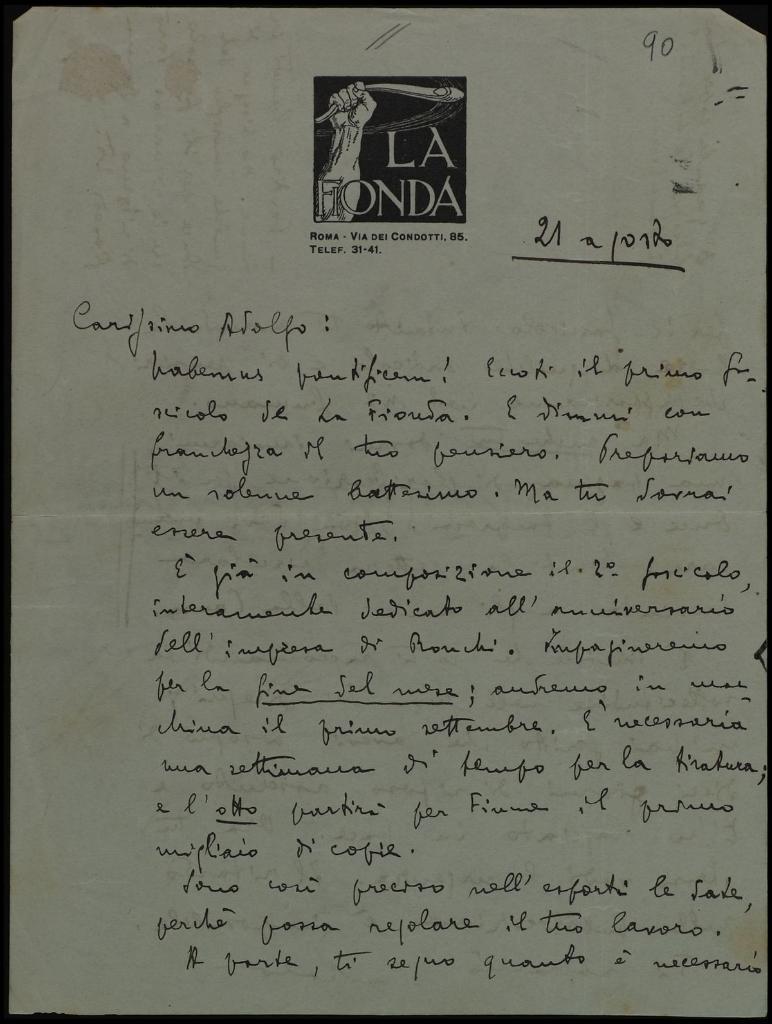 90
LA
FIONDA
ROMA - VIA DEI CONDOTTI, 85.
TELEF. 31-41.
21 agosto
Carissimo Adolfo:
habemus pontificem! Eccoti il primo fa-
scicolo de La Fionda. E dimmi con
franchezza il tuo pensiero. Prepariamo
un solenne battesimo. Ma tu dovrai
essere presente.
È già in composizione il 2º fascicolo,
interamente dedicato all'anniversario
dell'impresa di Ronchi. Impagineremo
per la fine del mese; andremo in mac
china il primo settembre. È necessaria
una settimana di tempo per la tiratura;
e l'otto partirà per Fiume il primo
migliaio di copie.
Sono così preciso nell'esporti le date,
perchè possa regolare il tuo lavoro.
A parte, ti segno quanto è necessario